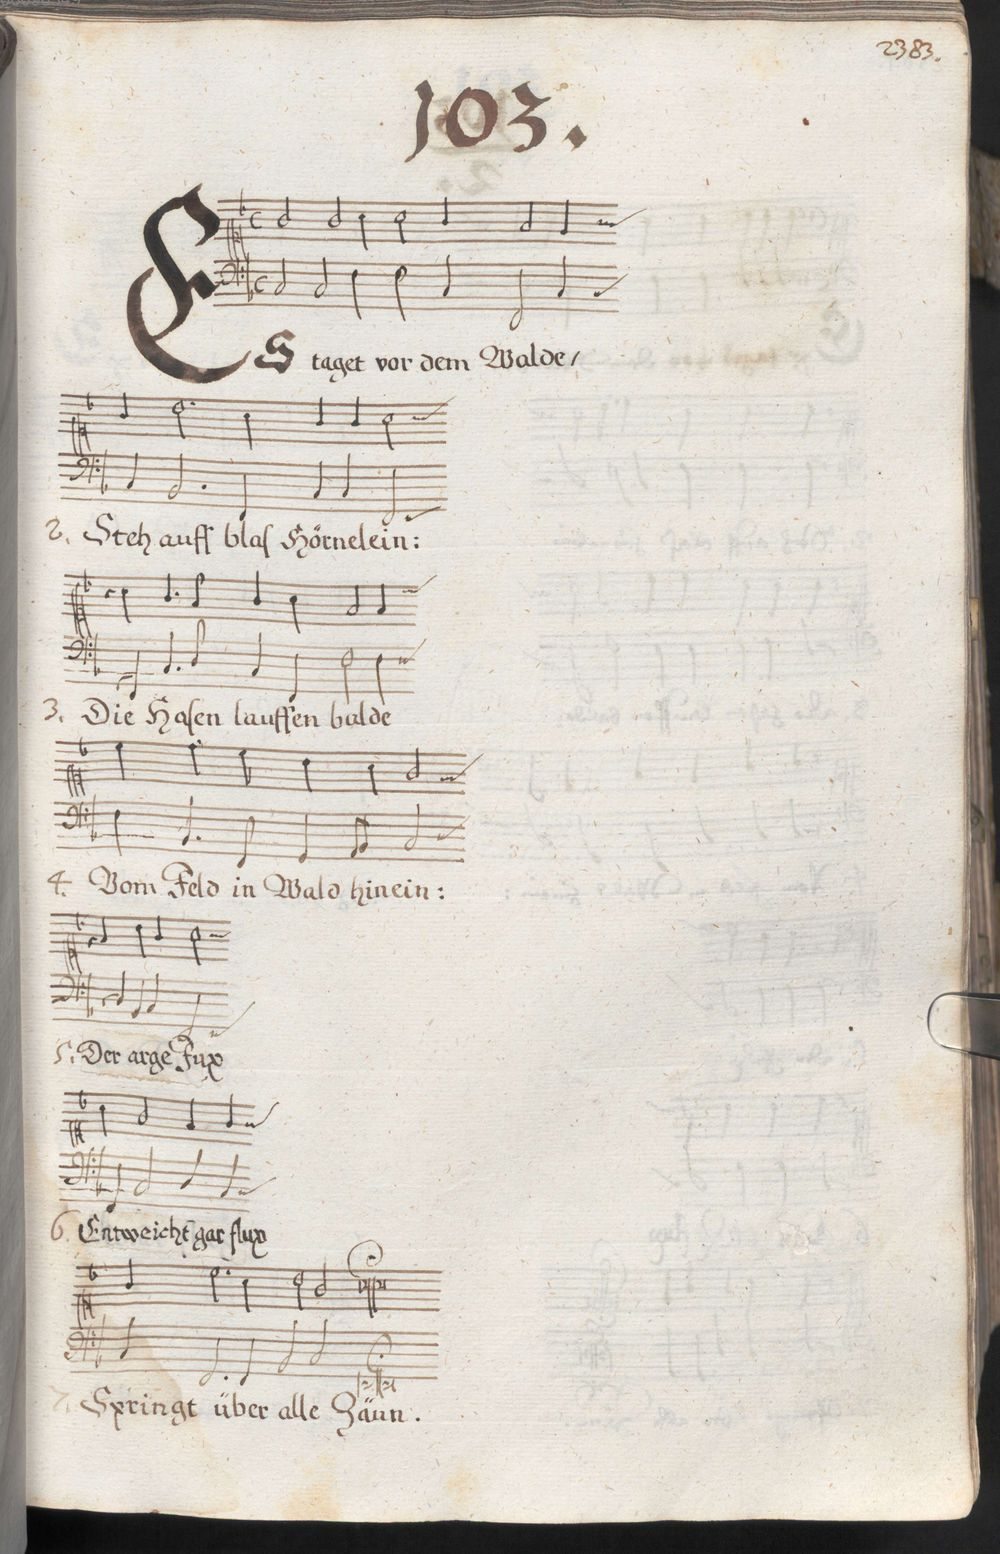 2383.
103.
ES taget vor dem Walde/
2. Steh auff blas Hörnelein:
3. Die Hasen lauffen balde
4. Vom Feld in Wald hinein:
5. Der arge Fux
6. Entweicht gar flux
7. Springt über alle Zäün.